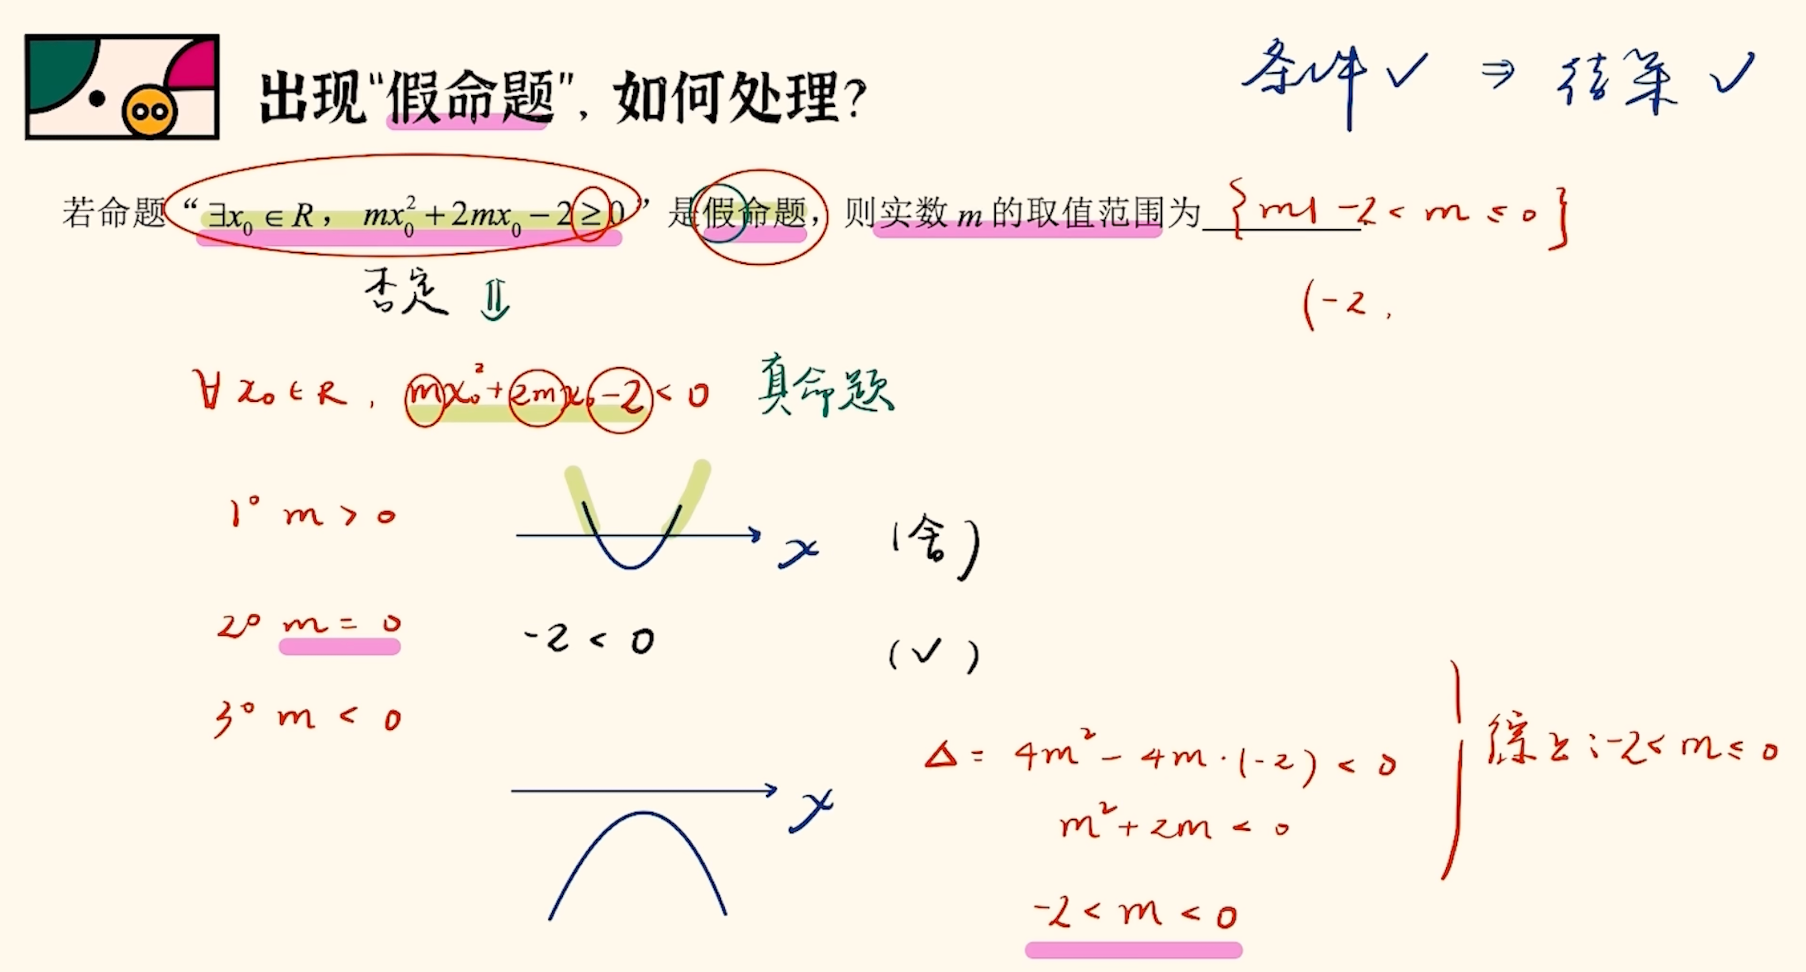 出现“假命题”，如何处理？
条件 ✓ ⇒ 结果 ✓
若命题“∃x₀∈R， mx₀²+2mx₀−2≥0”是假命题，则实数 m 的取值范围为 {m| -2 < m ≤ 0}
否定 ⇓
(-2,
∀ x₀ ∈ R, mx₀²+2mx₀-2 < 0 真命题
1° m > 0
x
(舍)
2° m = 0
-2 < 0
(✓)
3° m < 0
x
Δ = 4m² - 4m·(-2) < 0
m² + 2m < 0
-2 < m < 0
综上:-2 < m ≤ 0